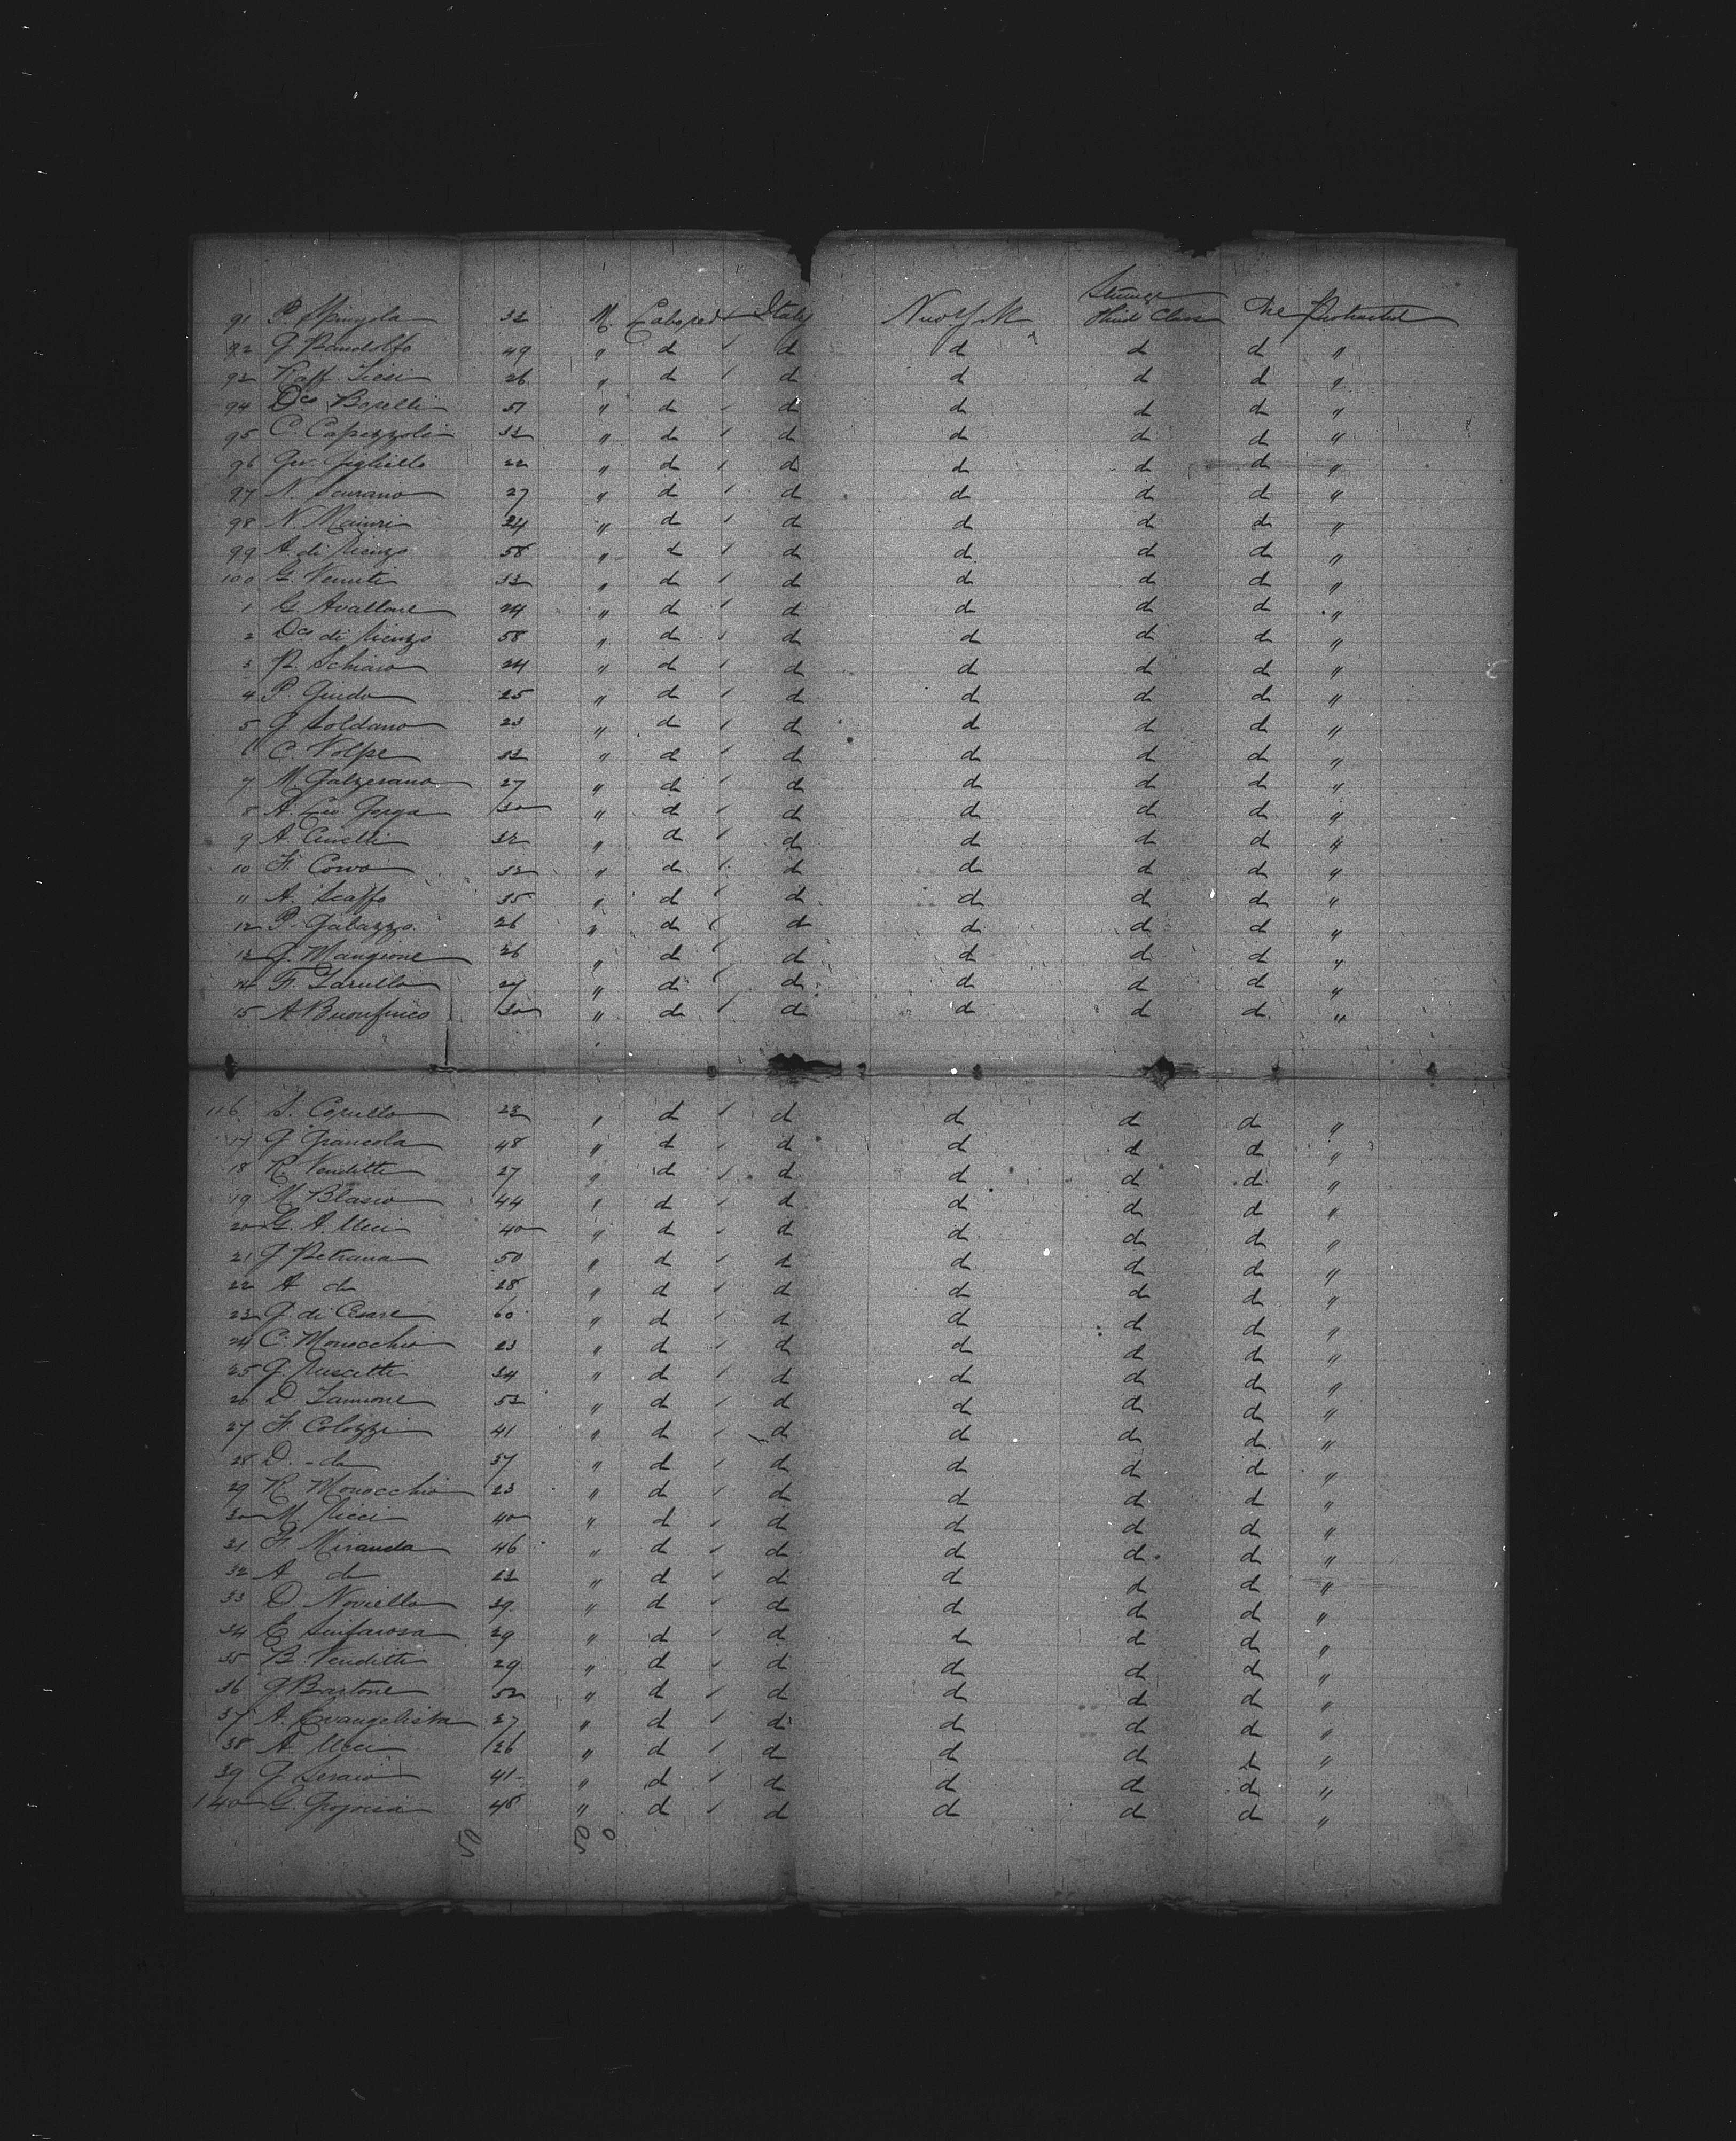 Steerage
91 P. Spingola 32 M. Italy New York Third Class Protracted
92 G. Pandolfo 49 " d / d d d d "
93 Raff. Liesi 26 " d / d d d d "
94 Dco Borelli 51 " d / d d d d "
95 C. Capezzoli 32 " d / d d d d "
96 Giv. Gigliello 22 " d / d d d d "
97 N. Scurano 27 " d / d d d d "
98 N. Mainri 24 " d / d d d d "
99 A. di Rienzo 58 " d / d d d d "
100 G. Venuti 32 " d / d d d d "
1 G. Avallone 24 " d / d d d d "
2 Dco di Rienzo 58 " d / d d d d "
3 P. Schiavo 24 " d / d d d d "
4 P. Guida 25 " d / d d d d "
5 G. Soldano 23 " d / d d d d "
6 C. Volpe 32 " d / d d d d "
7 M. Galzerano 27 " d / d d d d "
8 A. Gorga 30 " d / d d d d "
9 A. Cinelli 32 " d / d d d d "
10 F. Corvo 32 " d / d d d d "
11 A. Scaffo 35 " d / d d d d "
12 P. Galazzo 26 " d / d d d d "
13 G. Mangione 26 " d / d d d d "
14 F. Zarullo 27 " d / d d d d "
15 A. Buonfinico 30 " d / d d d d "
116 S. Copullo 23 " d / d d d d "
17 G. Giancola 48 " d / d d d d "
18 R. Venditti 27 " d / d d d d "
19 M. Blasio 44 " d / d d d d "
20 G. A. Ucci 40 " d / d d d d "
21 G. Petrana 50 " d / d d d d "
22 A. d 28 " d / d d d d "
23 G. di Cesare 60 " d / d d d d "
24 C. Monacchio 23 " d / d d d d "
25 G. Ruscetti 34 " d / d d d d "
26 D. Iannone 52 " d / d d d d "
27 F. Colozzi 41 " d / d d d d "
28 D. - d 37 " d / d d d d "
29 R. Monacchio 23 " d / d d d d "
30 M. Ricci 40 " d / d d d d "
31 F. Miranda 46 " d / d d d d "
32 A d 22 " d / d d d d "
33 D. Noviello 39 " d / d d d d "
34 E. Sinfarosa 29 " d / d d d d "
35 B. Venditti 29 " d / d d d d "
36 G. Bartone 52 " d / d d d d "
37 A. Evangelista 27 " d / d d d d "
38 A. Ucci 26 " d / d d d d "
39 G. Seraio 41 " d / d d d d "
140 G. 48 " d / d d d d "